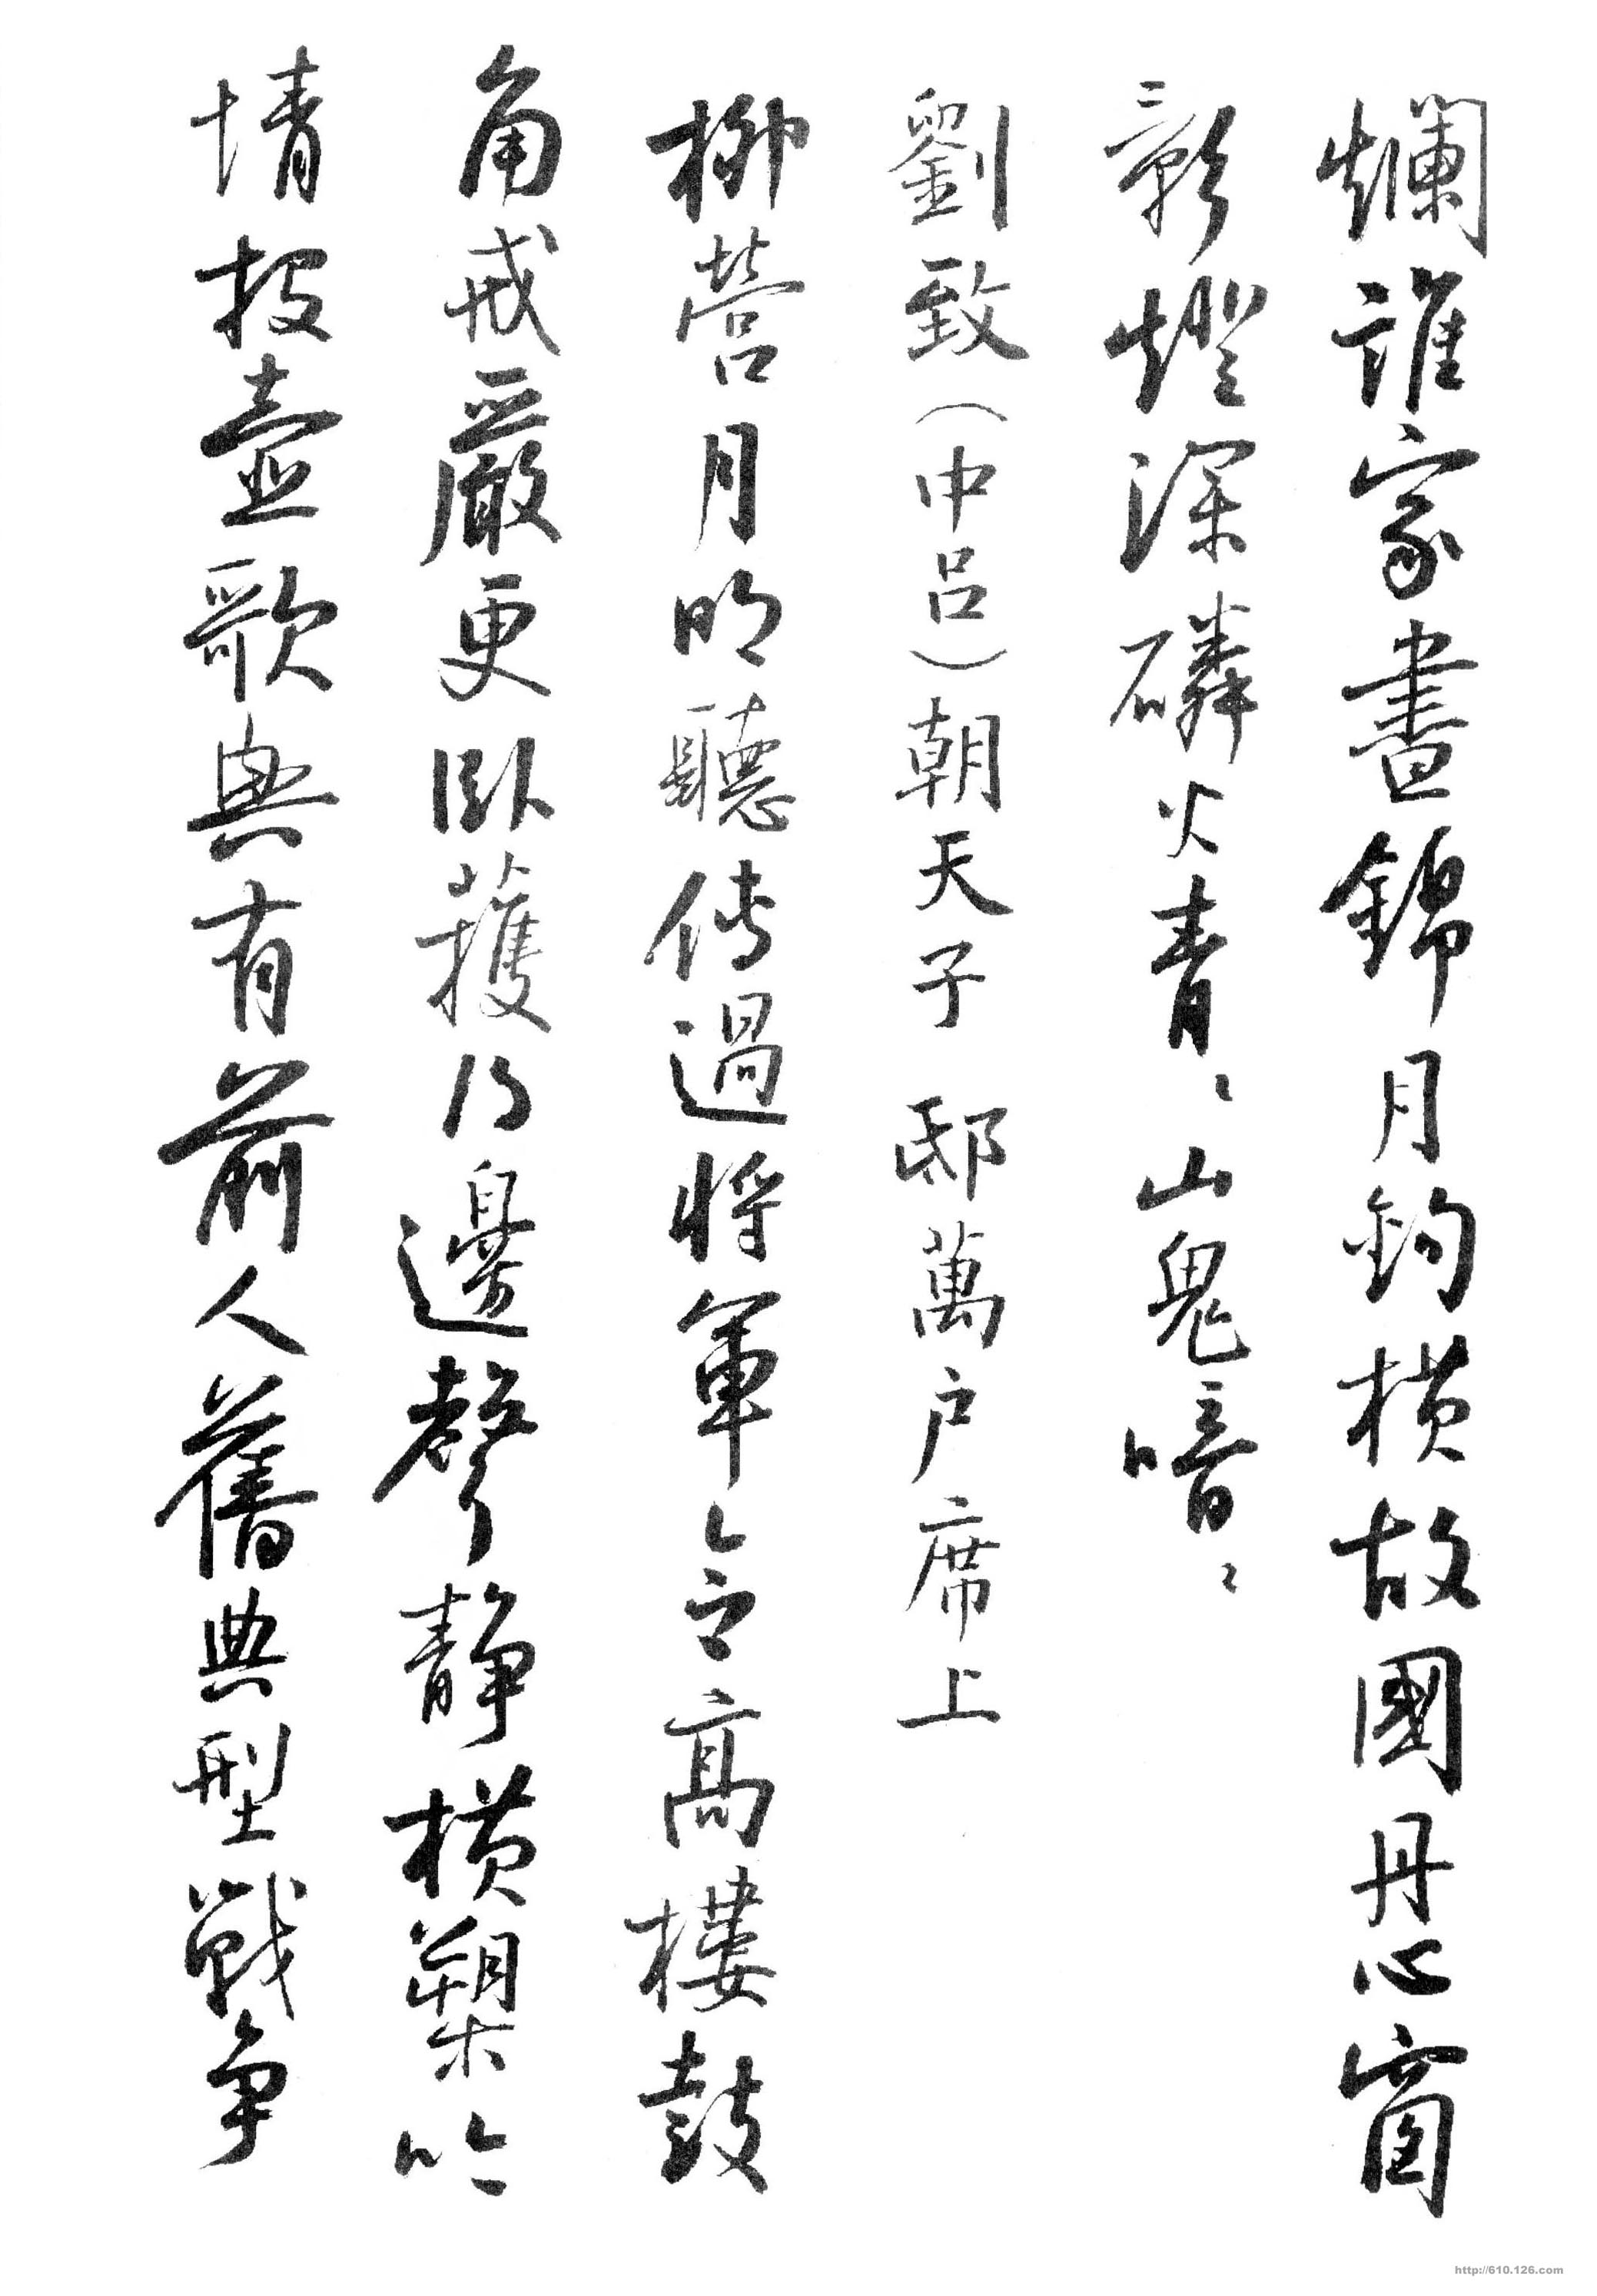 爛誰家晝錦月鈎横故國丹心窗
影燈深磷火青〻山鬼喑〻
劉致（中吕）朝天子 邸萬户席上
柳營月明聽傳過將軍令高樓鼓
角戒嚴更卧護得邊聲静横槊吟
情投壺歌興有前人舊典型戰争
http://610.126.com